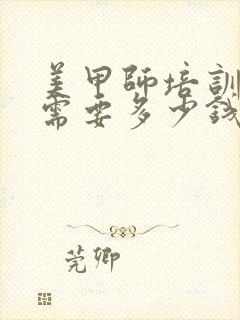 美甲師培訓
需要多少錢
莞卿